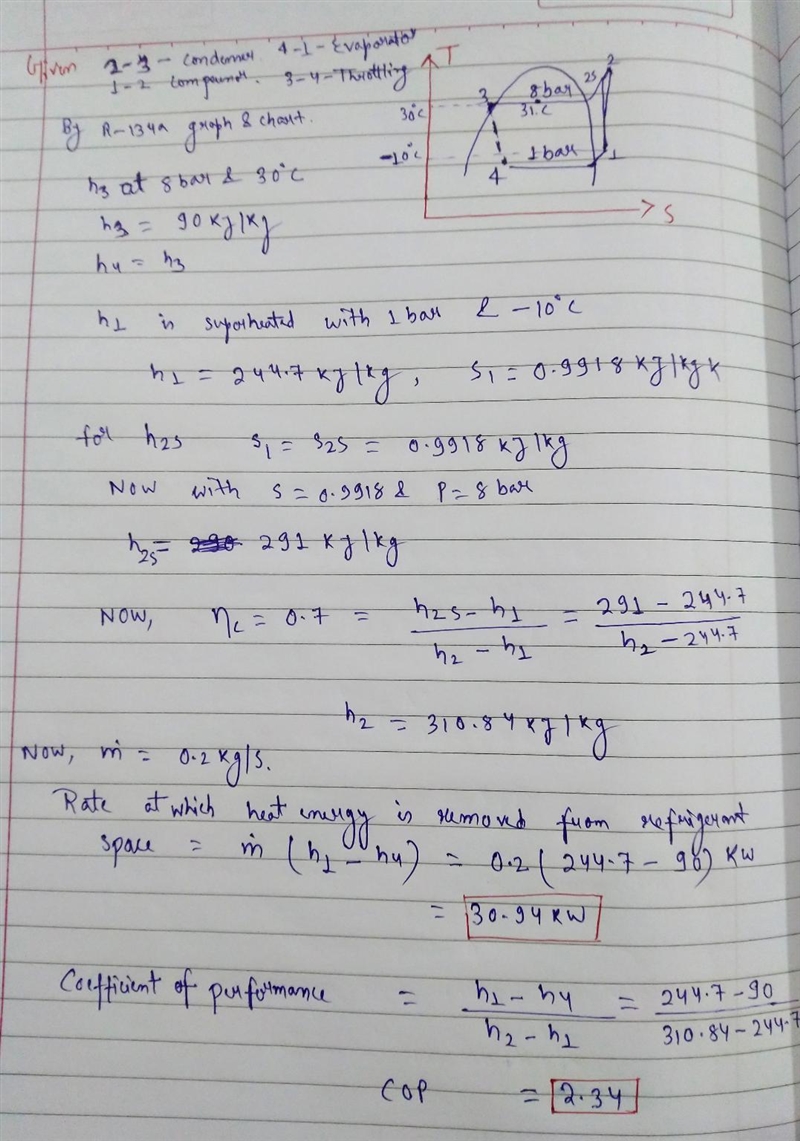 Given 2-3 - condenser 4-1 - Evaporator
1-2 compressor. 3-4 - Throttling
By R-134a graph & chart.
T
2
2s
3
8 bar
30°C
31.C
-10°C
1 bar
1
4
S
h3 at 8 bar & 30°C
h3 = 90 KJ/Kg
h4 = h3
h1 is superheated with 1 bar & -10°C
h1 = 244.7 KJ/Kg, s1 = 0.9918 KJ/Kg K
for h2s s1 = s2s = 0.9918 KJ/Kg
NOW with s = 0.9918 & P = 8 bar
h2s = 290 291 KJ/Kg
NOW, ηc = 0.7 = h2s - h1 / h2 - h1 = 291 - 244.7 / h2 - 244.7
h2 = 310.84 KJ/Kg
NOW, ṁ = 0.2 Kg/s.
Rate at which heat energy is removed from refrigerant
space = ṁ (h1 - h4) = 0.2 (244.7 - 90) KW
= 30.94 KW
Coefficient of performance = h1 - h4 / h2 - h1 = 244.7 - 90 / 310.84 - 244.7
COP = 2.34